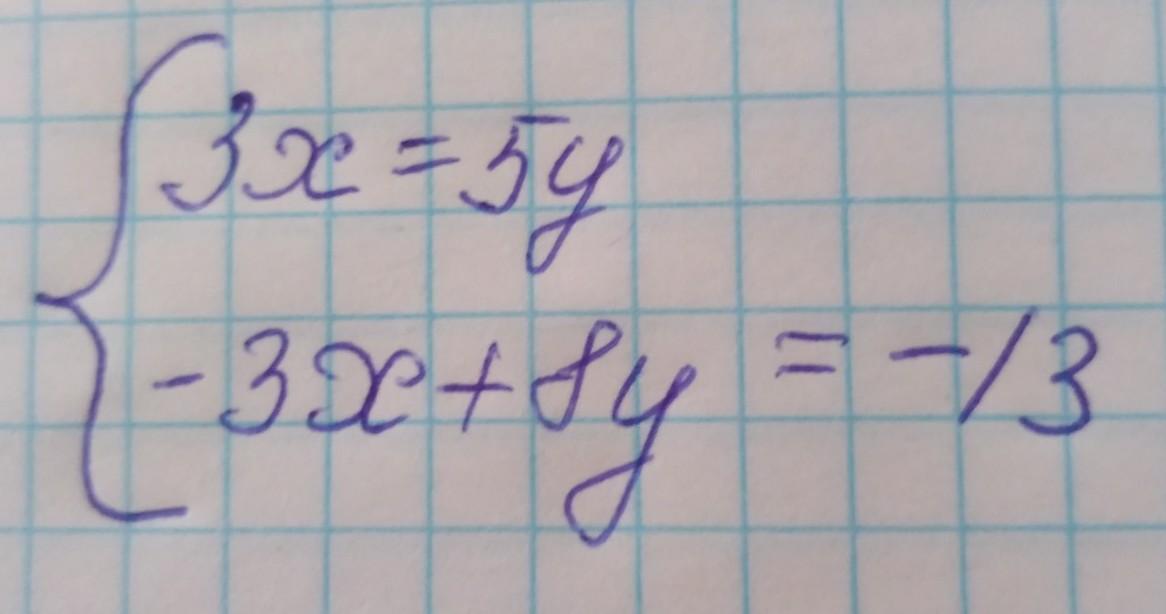 3x = 5y
-3x + 8y = -13